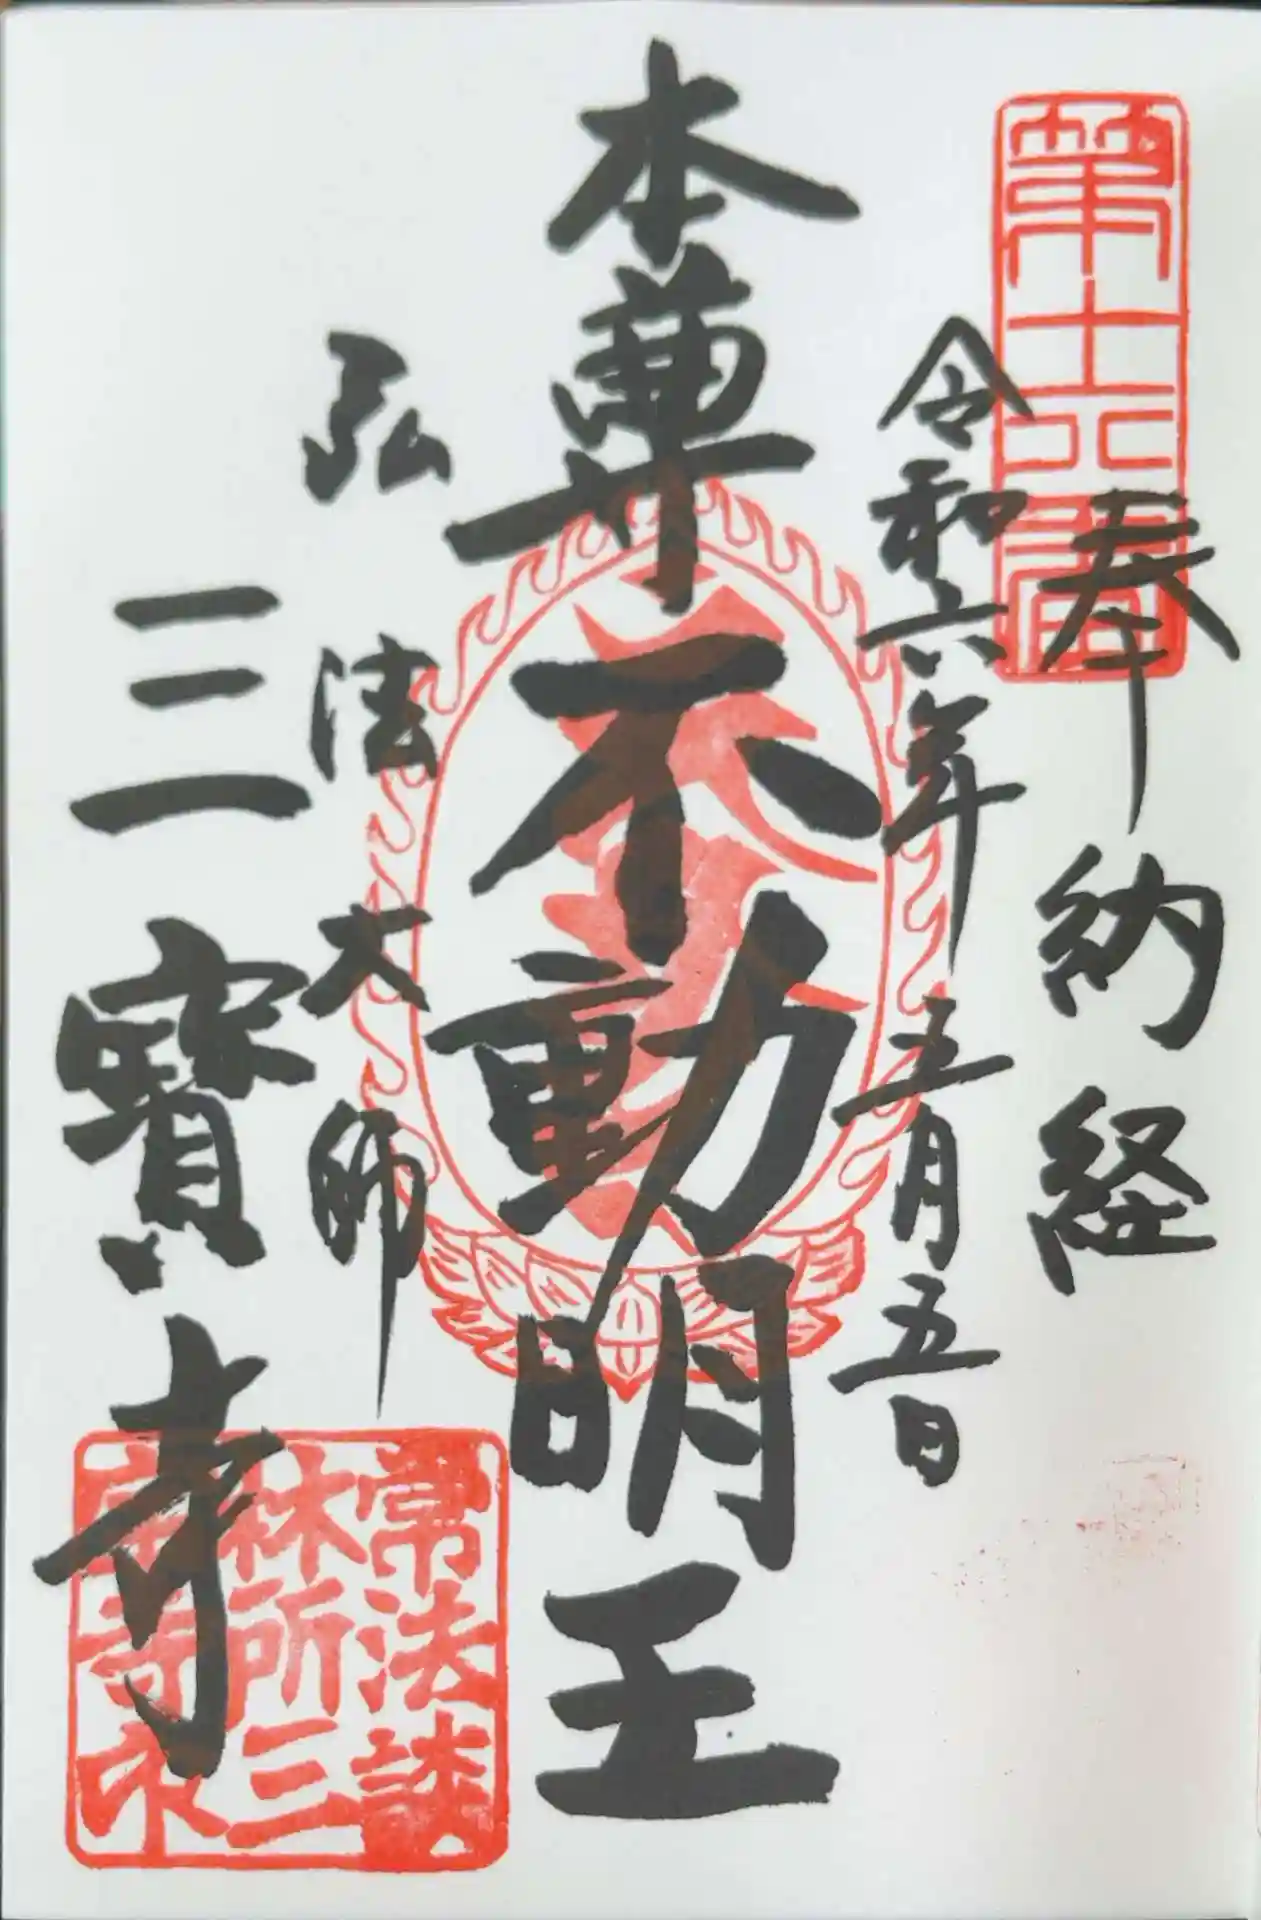 第十六番
奉納経
令和六年五月五日
本尊不動明王
弘法大師
三寶寺
常法談
林所三
寺